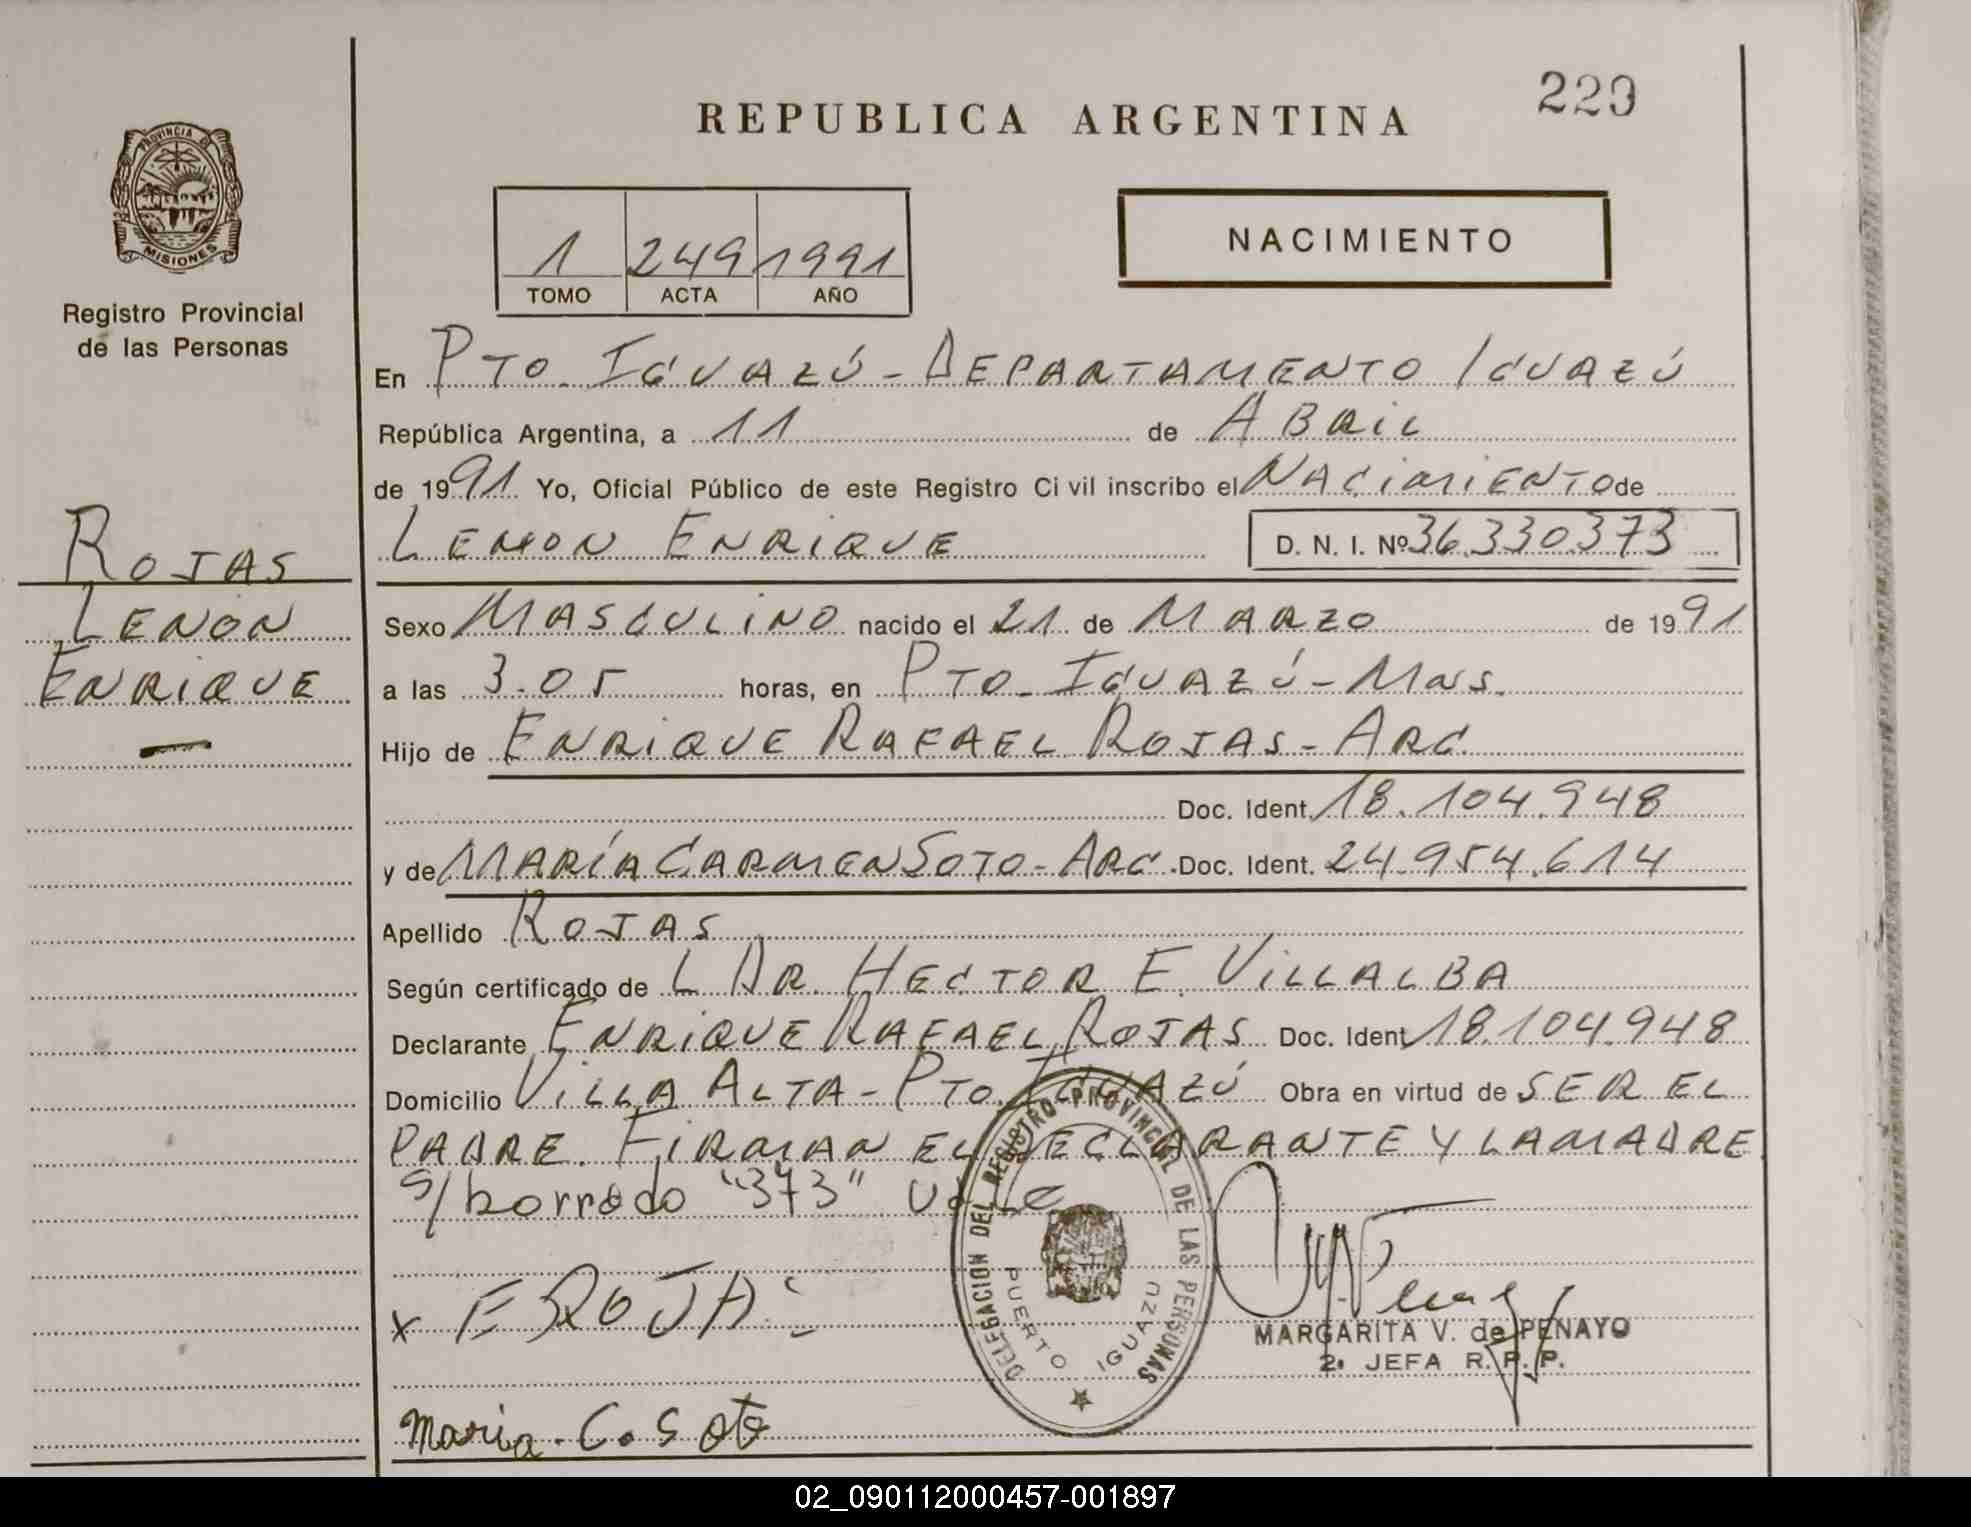 229
REPUBLICA ARGENTINA
PROVINCIA DE
MISIONES
Registro Provincial
de las Personas
1 249 1991
TOMO ACTA AÑO
NACIMIENTO
En PTO. IGUAZÚ - DEPARTAMENTO IGUAZÚ
República Argentina, a 11 de ABRIL
de 1991 Yo, Oficial Público de este Registro Civil inscribo el NACIMIENTO de
LENON ENRIQUE D. N. I. Nº 36.330373
ROJAS
LENON
ENRIQUE
—
Sexo MASCULINO nacido el 21 de MARZO de 1991
a las 3.05 horas, en PTO. IGUAZÚ - Mns.
Hijo de ENRIQUE RAFAEL ROJAS - ARG.
Doc. Ident. 18.104.948
y de MARÍA CARMEN SOTO - ARG. Doc. Ident. 24.954.614
Apellido ROJAS
Según certificado de L DR. HECTOR E. VILLALBA
Declarante ENRIQUE RAFAEL ROJAS Doc. Ident. 18.104.948
Domicilio VILLA ALTA - PTO. IGUAZÚ Obra en virtud de SER EL
PADRE. FIRMAN EL DECLARANTE Y LA MADRE.
S/borrado "373" Vale
x E ROJAS
DELEGACION DEL REGISTRO PROVINCIAL DE LAS PERSONAS
PUERTO IGUAZU
MARGARITA V. de PENAYO
2ª JEFA R. P. P.
Maria. C. Soto
02_090112000457-001897